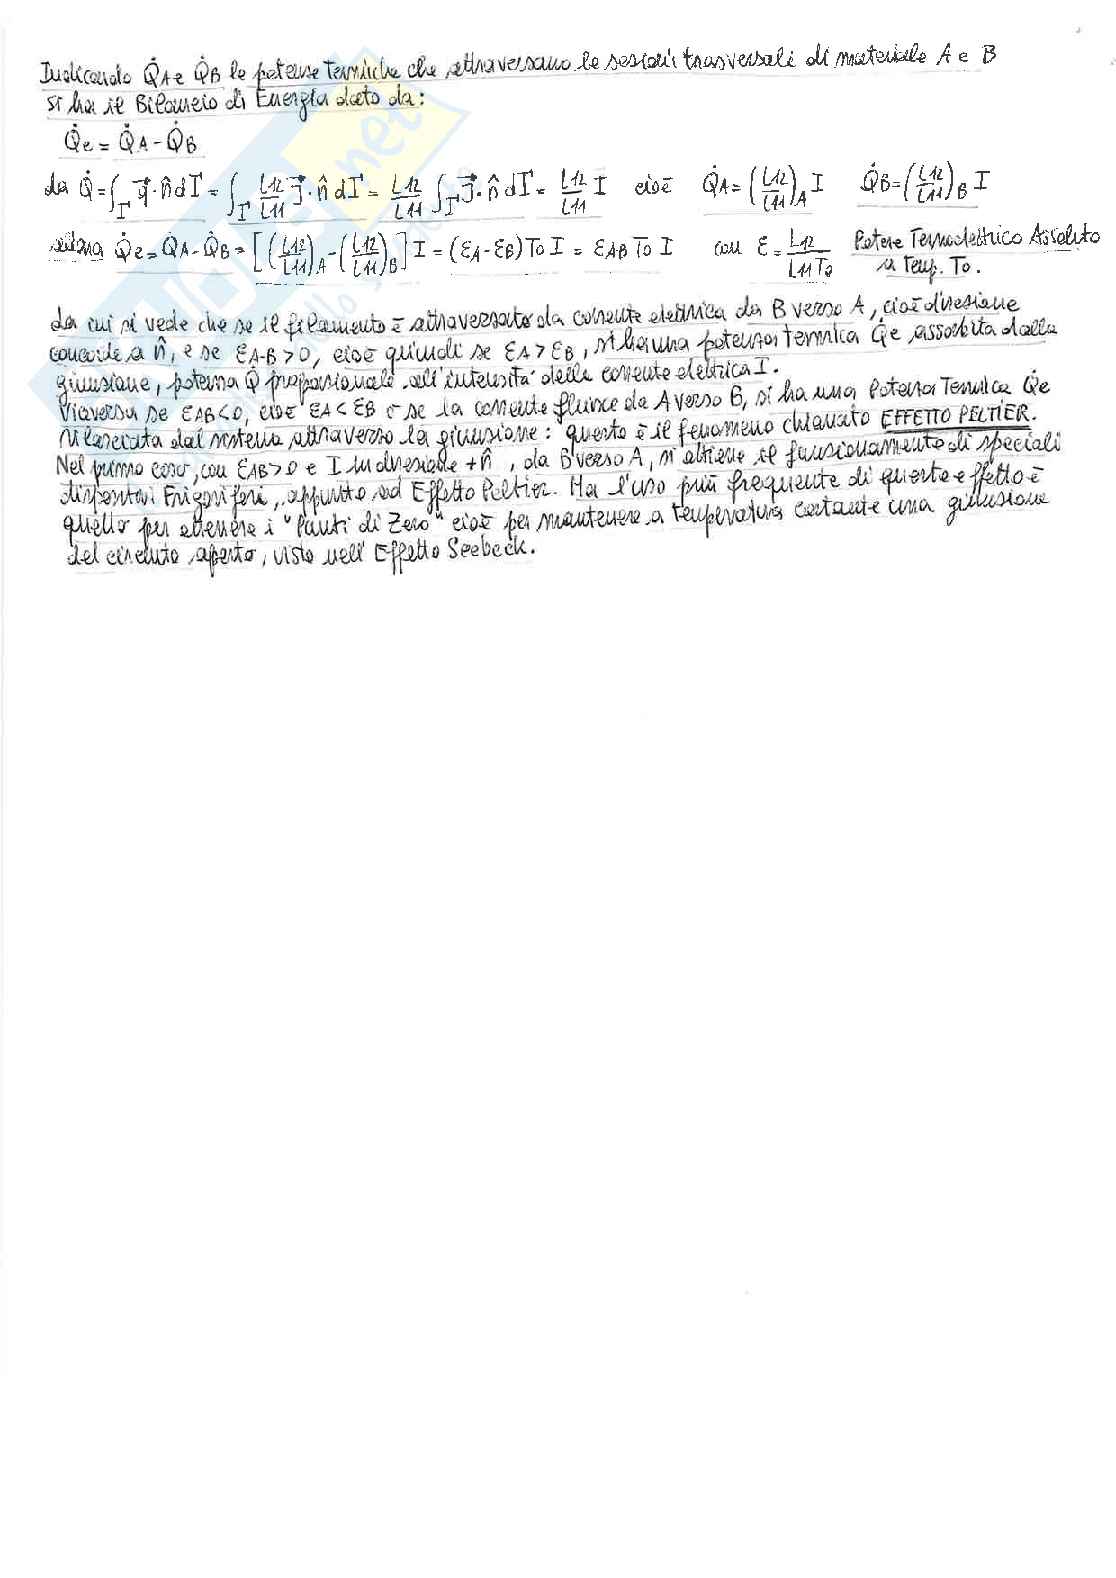 Indicando Q̇A e Q̇B le potenze termiche che attraversano le sezioni trasversali di materiale A e B
si ha il Bilancio di Energia dato da:
Q̇e = Q̇A - Q̇B
da Q̇ = ∫Γ q⃗ · n̂ dΓ = ∫Γ L12/L11 J⃗ · n̂ dΓ = L12/L11 ∫Γ J⃗ · n̂ dΓ = L12/L11 I cioè Q̇A = (L12/L11)A I Q̇B = (L12/L11)B I
Q̇e = QA - QB = [(L12/L11)A - (L12/L11)B] I = (εA - εB) To I = εAB To I con ε = L12/L11 To Potere Termoelettrico Assoluto
a Temp. To.
da cui si vede che se il filamento è attraversato da corrente elettrica da B verso A, cioè direzione
concorde a n̂, e se εA-B > 0, cioè quindi se εA > εB, si ha una potenza termica Q̇e assorbita dalla
giunzione, potenza Q̇ proporzionale all'intensità della corrente elettrica I.
Viceversa se εAB < 0, cioè εA < εB o se la corrente fluisce da A verso B, si ha una Potenza Termica Q̇e
rilasciata dal sistema attraverso la giunzione: questo è il fenomeno chiamato EFFETTO PELTIER.
Nel primo caso, con εAB > 0 e I in direzione +n̂, da B verso A, si ottiene il funzionamento di speciali
dispositivi Frigoriferi, appunto ad Effetto Peltier. Ma l'uso più frequente di questo effetto è
quello per ottenere i "Punti di Zero" cioè per mantenere a temperatura costante una giunzione
del circuito aperto, visto nell' Effetto Seebeck.